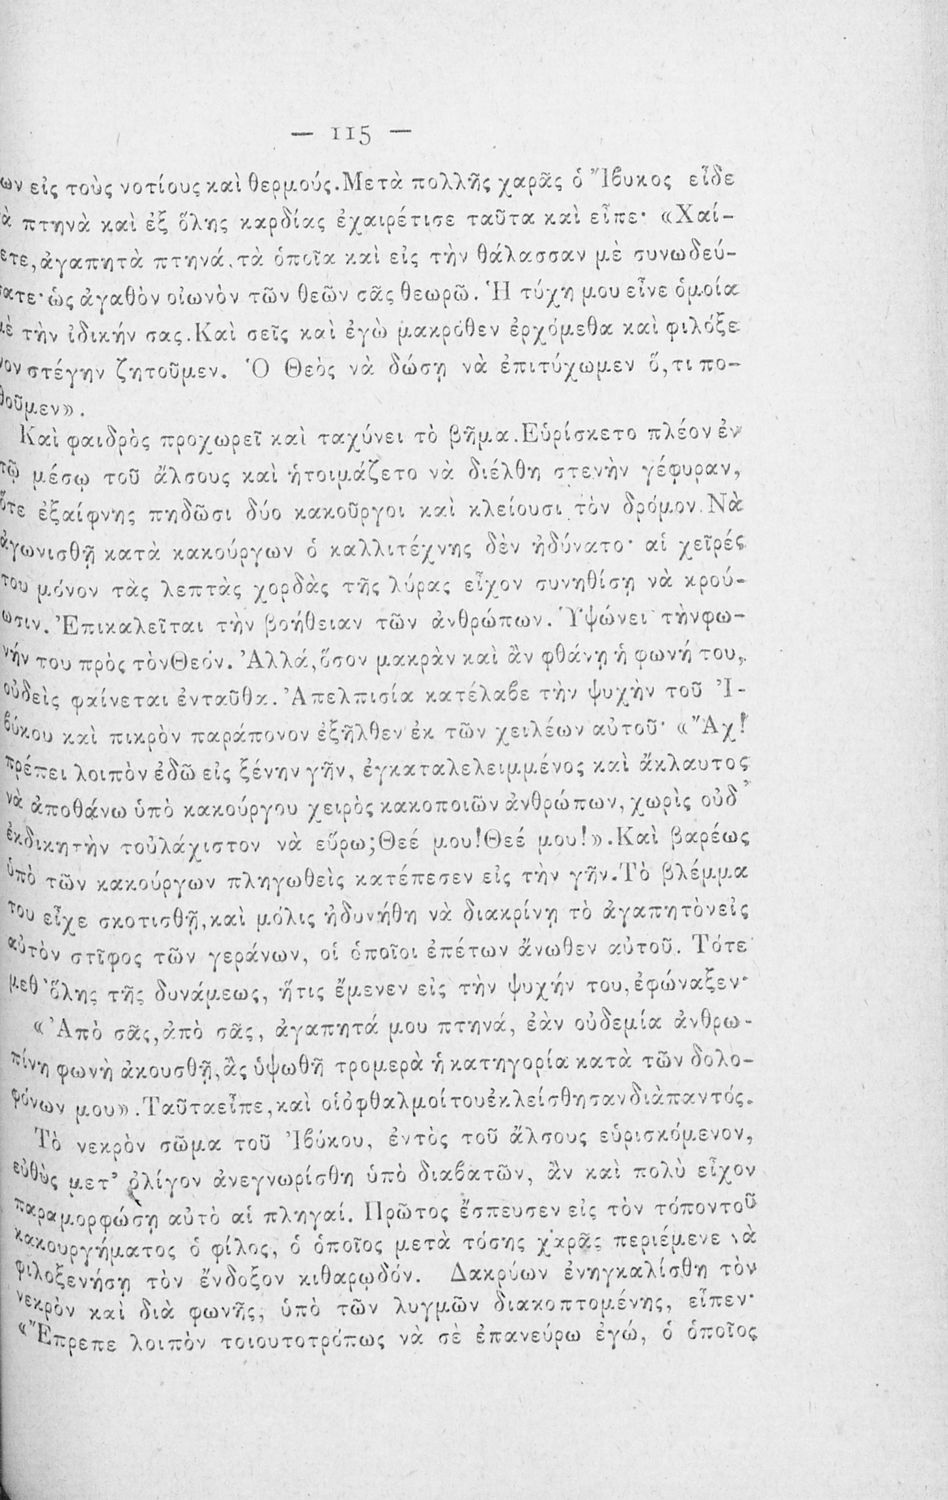 — 115 —
ων εἰς τοὺς νοτίους καὶ θερμούς. Μετὰ πολλῆς χαρᾶς ὁ Ἴβυκος εἶδε
ὰ πτηνὰ καὶ ἐξ ὅλης καρδίας ἐχαιρέτισε ταῦτα καὶ εἶπε· «Χαί-
ετε, ἀγαπητὰ πτηνά, τὰ ὁποῖα καὶ εἰς τὴν θάλασσαν μὲ συνωδεύ-
σατε· ὡς ἀγαθὸν οἰωνὸν τῶν θεῶν σᾶς θεωρῶ. Ἡ τύχη μου εἶνε ὁμοία
μὲ τὴν ἰδικήν σας. Καὶ σεῖς καὶ ἐγὼ μακρόθεν ἐρχόμεθα καὶ φιλόξε
νον στέγην ζητοῦμεν. Ὁ Θεὸς νὰ δώσῃ νὰ ἐπιτύχωμεν ὅ,τι πο-
θοῦμεν».
Καὶ φαιδρὸς προχωρεῖ καὶ ταχύνει τὸ βῆμα. Εὑρίσκετο πλέον ἐν
τῷ μέσῳ τοῦ ἄλσους καὶ ἡτοιμάζετο νὰ διέλθῃ στενὴν γέφυραν,
ὅτε ἐξαίφνης πηδῶσι δύο κακοῦργοι καὶ κλείουσι τὸν δρόμον. Νὰ
ἀγωνισθῇ κατὰ κακούργων ὁ καλλιτέχνης δὲν ἠδύνατο· αἱ χεῖρές
του μόνον τὰς λεπτὰς χορδὰς τῆς λύρας εἶχον συνηθίσῃ νὰ κρού-
ωσιν. Ἐπικαλεῖται τὴν βοήθειαν τῶν ἀνθρώπων. Ὑψώνει τὴν φω-
νήν του πρὸς τὸν Θεόν. Ἀλλά, ὅσον μακρὰν καὶ ἂν φθάνῃ ἡ φωνή του,
οὐδεὶς φαίνεται ἐνταῦθα. Ἀπελπισία κατέλαβε τὴν ψυχὴν τοῦ Ἰ-
βύκου καὶ πικρὸν παράπονον ἐξῆλθεν ἐκ τῶν χειλέων αὐτοῦ· «Ἄχ!
πρέπει λοιπὸν ἐδῶ εἰς ξένην γῆν, ἐγκαταλελειμμένος καὶ ἄκλαυτος
νὰ ἀποθάνω ὑπὸ κακούργου χειρὸς κακοποιῶν ἀνθρώπων, χωρὶς οὐδ'
ἐκδικητὴν τοὐλάχιστον νὰ εὕρω; Θεέ μου! Θεέ μου!». Καὶ βαρέως
ὑπὸ τῶν κακούργων πληγωθεὶς κατέπεσεν εἰς τὴν γῆν. Τὸ βλέμμα
του εἶχε σκοτισθῆ, καὶ μόλις ἠδυνήθη νὰ διακρίνῃ τὸ ἀγαπητὸν εἰς
αὐτὸν στῖφος τῶν γεράνων, οἱ ὁποῖοι ἐπέτων ἄνωθεν αὐτοῦ. Τότε
μεθ' ὅλης τῆς δυνάμεως, ἥτις ἔμενεν εἰς τὴν ψυχήν του, ἐφώναξεν·
«Ἀπὸ σᾶς, ἀπὸ σᾶς, ἀγαπητά μου πτηνά, ἐὰν οὐδεμία ἀνθρω-
πίνη φωνὴ ἀκουσθῇ, ἂς ὑψωθῇ τρομερὰ ἡ κατηγορία κατὰ τῶν δολο-
φόνων μου». Ταῦτα εἶπε, καὶ οἱ ὀφθαλμοί του ἐκλείσθησαν διὰ παντός.
Τὸ νεκρὸν σῶμα τοῦ Ἰβύκου, ἐντὸς τοῦ ἄλσους εὑρισκόμενον,
εὐθὺς μετ' ὀλίγον ἀνεγνωρίσθη ὑπὸ διαβατῶν, ἂν καὶ πολὺ εἶχον
παραμορφώσῃ αὐτὸ αἱ πληγαί. Πρῶτος ἔσπευσεν εἰς τὸν τόπον τοῦ
κακουργήματος ὁ φίλος, ὁ ὁποῖος μετὰ τόσης χαρᾶς περιέμενε νὰ
φιλοξενήσῃ τὸν ἔνδοξον κιθαρῳδόν. Δακρύων ἐνηγκαλίσθη τὸν
νεκρὸν καὶ διὰ φωνῆς, ὑπὸ τῶν λυγμῶν διακοπτομένης, εἶπεν·
«Ἔπρεπε λοιπὸν τοιουτοτρόπως νὰ σὲ ἐπανεύρω ἐγώ, ὁ ὁποῖος